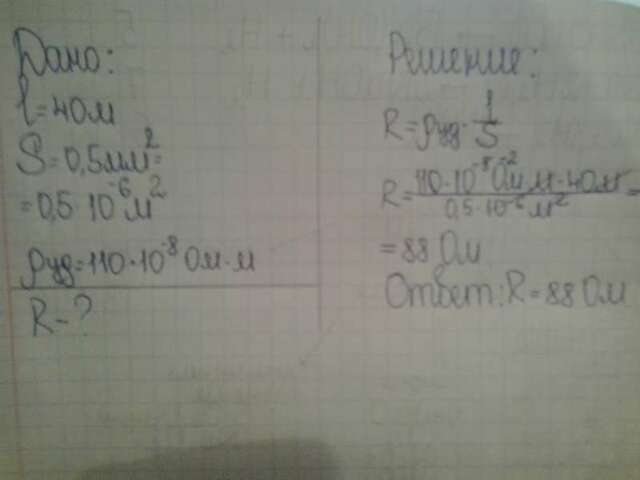 Дано:
l=40м
S=0,5мм²=
=0,5·10⁻⁶м²
ρуд=110·10⁻⁸ Ом·м
R-?
Решение:
R=ρуд·l/S
R=110·10⁻⁸ Ом м·40м/0,5·10⁻⁶м²=
=88 Ом
Ответ: R=88 Ом